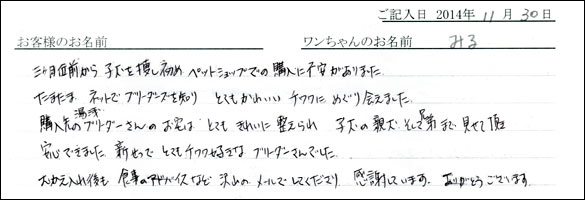 ご記入日 2014年 11月 30日
お客様のお名前 ワンちゃんのお名前 みる
三ヶ月位前から 子犬を捜し初め ペットショップでの購入に不安がありました
たまたま ネットで ブリーダーズを知り とてもかわいい チワワに めぐり会えました。
湯浅
購入先のブリーダーさんのお宅は とても きれいに整えられ 子犬の親犬、そして兄弟まで 見せて頂き
安心できました。親切で とてもチワワ好きな ブリーダーさんでした。
お迎え入れ後も 食事のアドバイスなど 沢山のメールでしてくださり 感謝しています。ありがとうございます